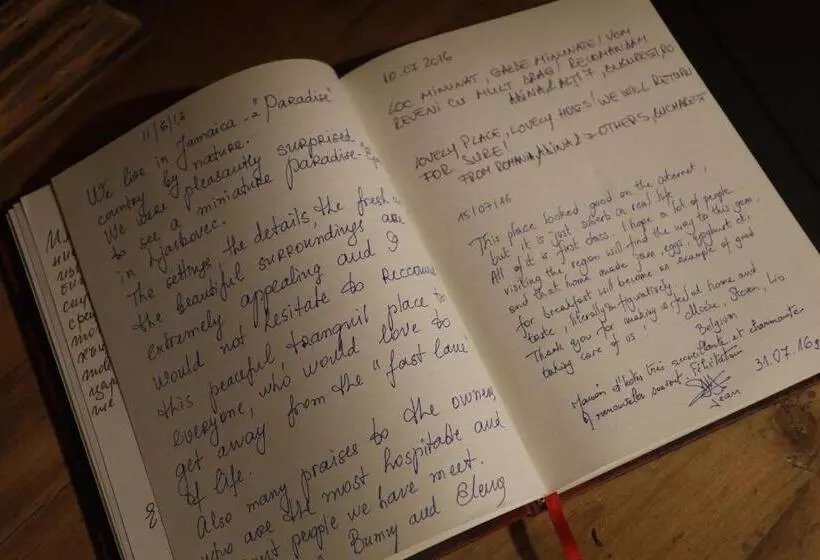 11/6/16
We live in Jamaica - a "Paradise"
country by nature.
We were pleasantly surprised
to see a miniature paradise-
in Djaskovec.
The settings, the details, the fresh
the beautiful surroundings are
extremely appealing and I
would not hesitate to reccom
this peaceful, tranquil place to
everyone, who would love to
get away from the "fast lane"
of life.
Also many praises to the owners
who are the most hospitable and
people we have meet.
Bunny and Eleng
10.07 2016
LOC MINUNAT, GAZDE MINUNATE! VOM
REVENI CU MULT DRAG! RECOMANDAM
ALINA & ALTI 7, BUKUREST, RO
LOVELY PLACE, LOVELY HOSTS! WE WILL RETURN
FOR SURE!
FROM ROMANIA, ALINA & 7 OTHERS, BUCHAREST
15/07/16
This place looked good on the internet,
but it is just superb in real life.
All of it is first class. I hope a lot of people
visiting the region will find the way to this gem,
and that home made jam, eggs, yoghurt etc,
for breakfast will become an example of good
taste, literally & figuratively.
Thank you for making us feel at home and
taking care of us! Steven,
Belgium
Maison d'hotes très accueillante et charmante
souvent. Félicitation
Jean
31.07.16